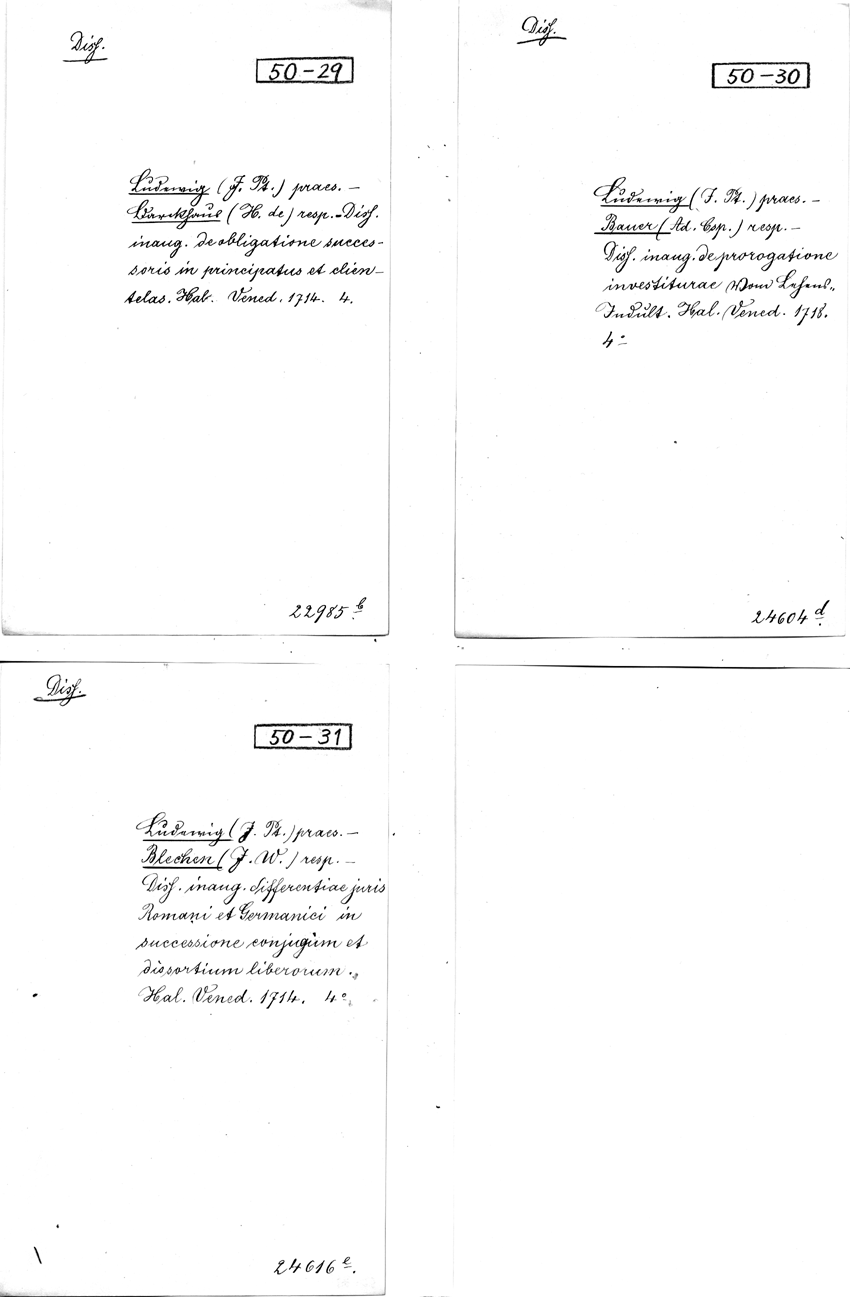 Diss.
50-29
Ludewig (J. Pt.) praes. –
Barckhaus (H. de) resp. – Diss.
inaug. de obligatione succes-
soris in principatus et clien-
telas. Hal. Vened. 1714. 4.
22985 b.
Diss.
50-30
Ludewig (J. Pt.) praes. –
Bauer (Ad. Csp.) resp. –
Diss. inaug. de prorogatione
investiturae Vom Lehens-
Indult. Hal. Vened. 1718.
4°
24604 d.
Diss.
50-31
Ludewig (J. Pt.) praes. –
Blechen (J. W.) resp. –
Diss. inaug. differentiae juris
Romani et Germanici in
successione conjugum et
dissortium liberorum.
Hal. Vened. 1714. 4°.
24616 e.